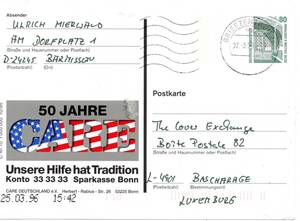 Absender
ULRICH MEERWALD
AM DORFPLATZ 1
(Straße und Hausnummer oder Postfach)
D-24245 BARMISSEN
(Postleitzahl) (Ort)
80
Postkarte
50 JAHRE
CARE
Unsere Hilfe hat Tradition
Konto 33 33 33 Sparkasse Bonn
CARE DEUTSCHLAND e.V. Herbert-Rabius-Str. 26 53225 Bonn
25.03.96 15:42
The Cover Exchange
Boîte Postale 82
(Straße und Hausnummer oder Postfach)
L-4901 BASCHARAGE
(Postleitzahl) (Bestimmungsort)
LUXEMBURG